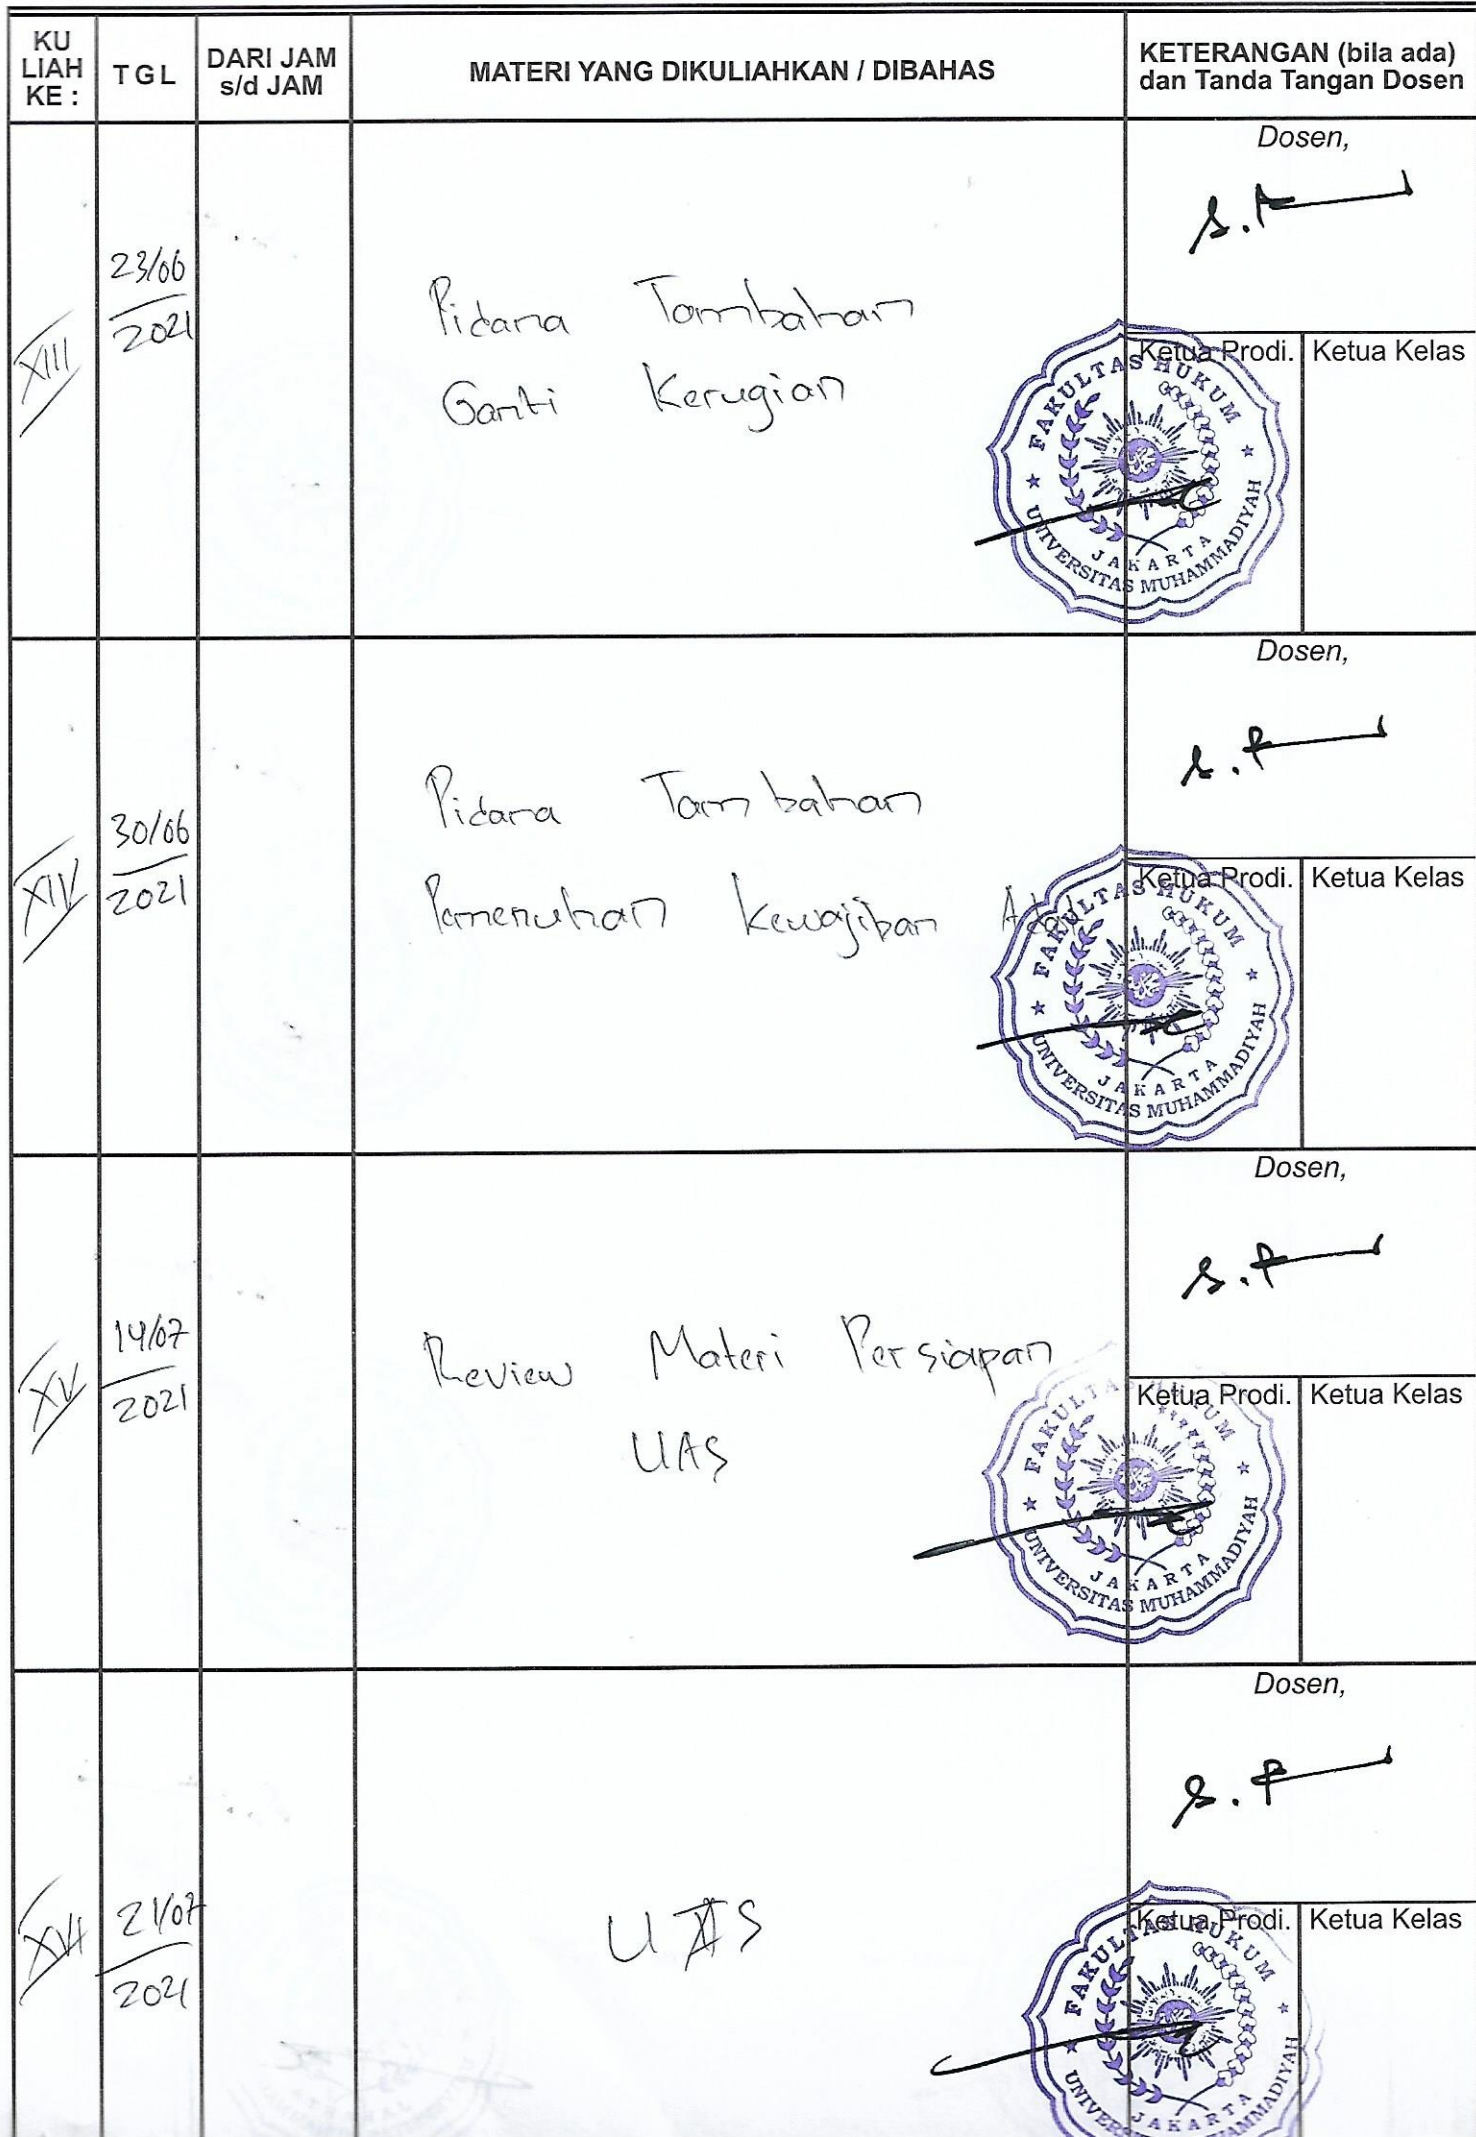 KU LIAH KE :
TGL
DARI JAM s/d JAM
MATERI YANG DIKULIAHKAN / DIBAHAS
KETERANGAN (bila ada) dan Tanda Tangan Dosen
XIII
23/06
2021
Pidana Tambahan
Ganti Kerugian
Dosen,
Ketua Prodi.
Ketua Kelas
FAKULTAS HUKUM
UNIVERSITAS MUHAMMADIYAH
JAKARTA
XIV
30/06
2021
Pidana Tambahan
Pemenuhan Kewajiban Adat
Dosen,
Ketua Prodi.
Ketua Kelas
FAKULTAS HUKUM
UNIVERSITAS MUHAMMADIYAH
JAKARTA
XV
14/07
2021
Review Materi Persiapan
UAS
Dosen,
Ketua Prodi.
Ketua Kelas
FAKULTAS HUKUM
UNIVERSITAS MUHAMMADIYAH
JAKARTA
XVI
21/07
2021
UAS
Dosen,
Ketua Prodi.
Ketua Kelas
FAKULTAS HUKUM
JAKARTA